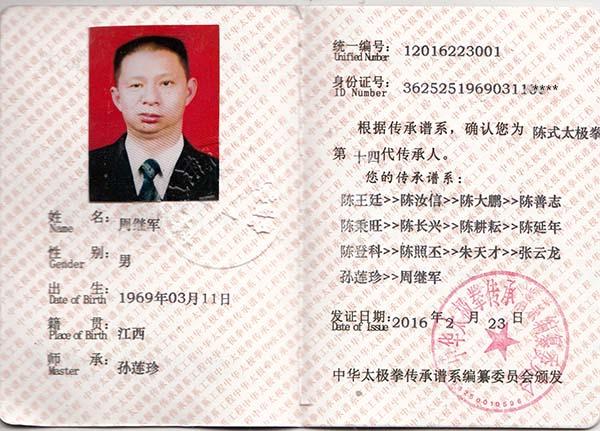 姓 名: 周继军
Name
性 别: 男
Gender
出 生: 1969年03月11日
Date of Birth
籍 贯: 江西
Place of Birth
师 承: 孙莲珍
Master
统一编号: 12016223001
Unified Number
身份证号:
ID Number
根据传承谱系，确认您为 陈式太极拳
第 十四代传承人。
您的传承谱系:
陈王廷>>陈汝信>>陈大鹏>>陈善志
陈秉旺>>陈长兴>>陈耕耘>>陈延年
陈登科>>陈照丕>>朱天才>>张云龙
孙莲珍>>周继军
发证日期: 2016 年 2 月 23 日
Date of Issue
中华太极拳传承谱系编纂委员会颁发